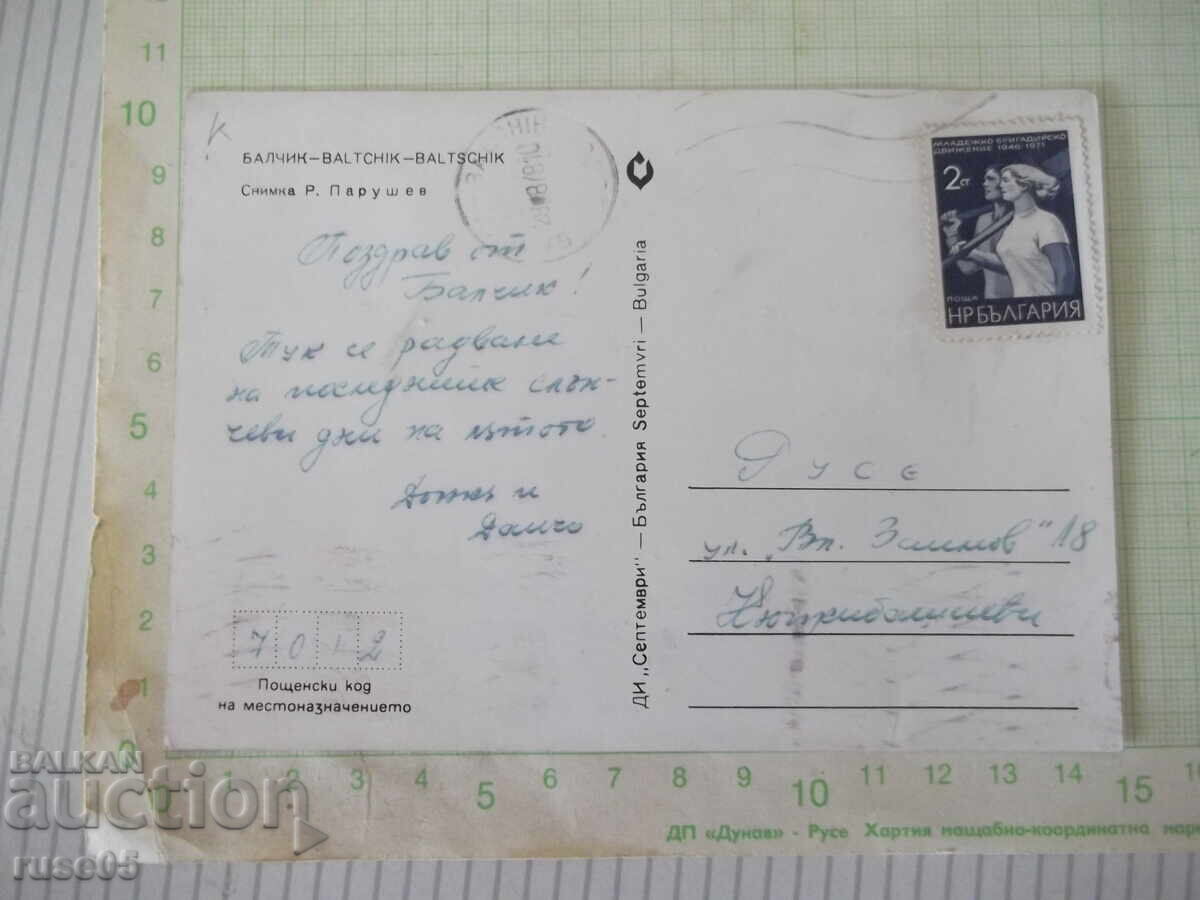 БАЛЧИК—BALTCHIK—BALTSCHIK
Снимка Р. Парушев
К
Поздрав от
Балчик!
Тук се радваме
на последните слън-
чеви дни на лятото.
и
Данчо
7012
Пощенски код
на местоназначението
ДИ „Септември" — България Septemvri — Bulgaria
МЛАДЕЖКО БРИГАДИРСКО
ДВИЖЕНИЕ 1946-1971
2 СТ
ПОЩА
НР БЪЛГАРИЯ
Русе
ул. „Вл. Заимов" 18
11
10
9
8
7
6
5
4
3
2
1
0
0 1 2 3 4 5 6 7 8 9 10 11 12 13 14 15
ДП «Дунав» - Русе Хартия мащабно-координатна
BALKAN
auction
ruse05